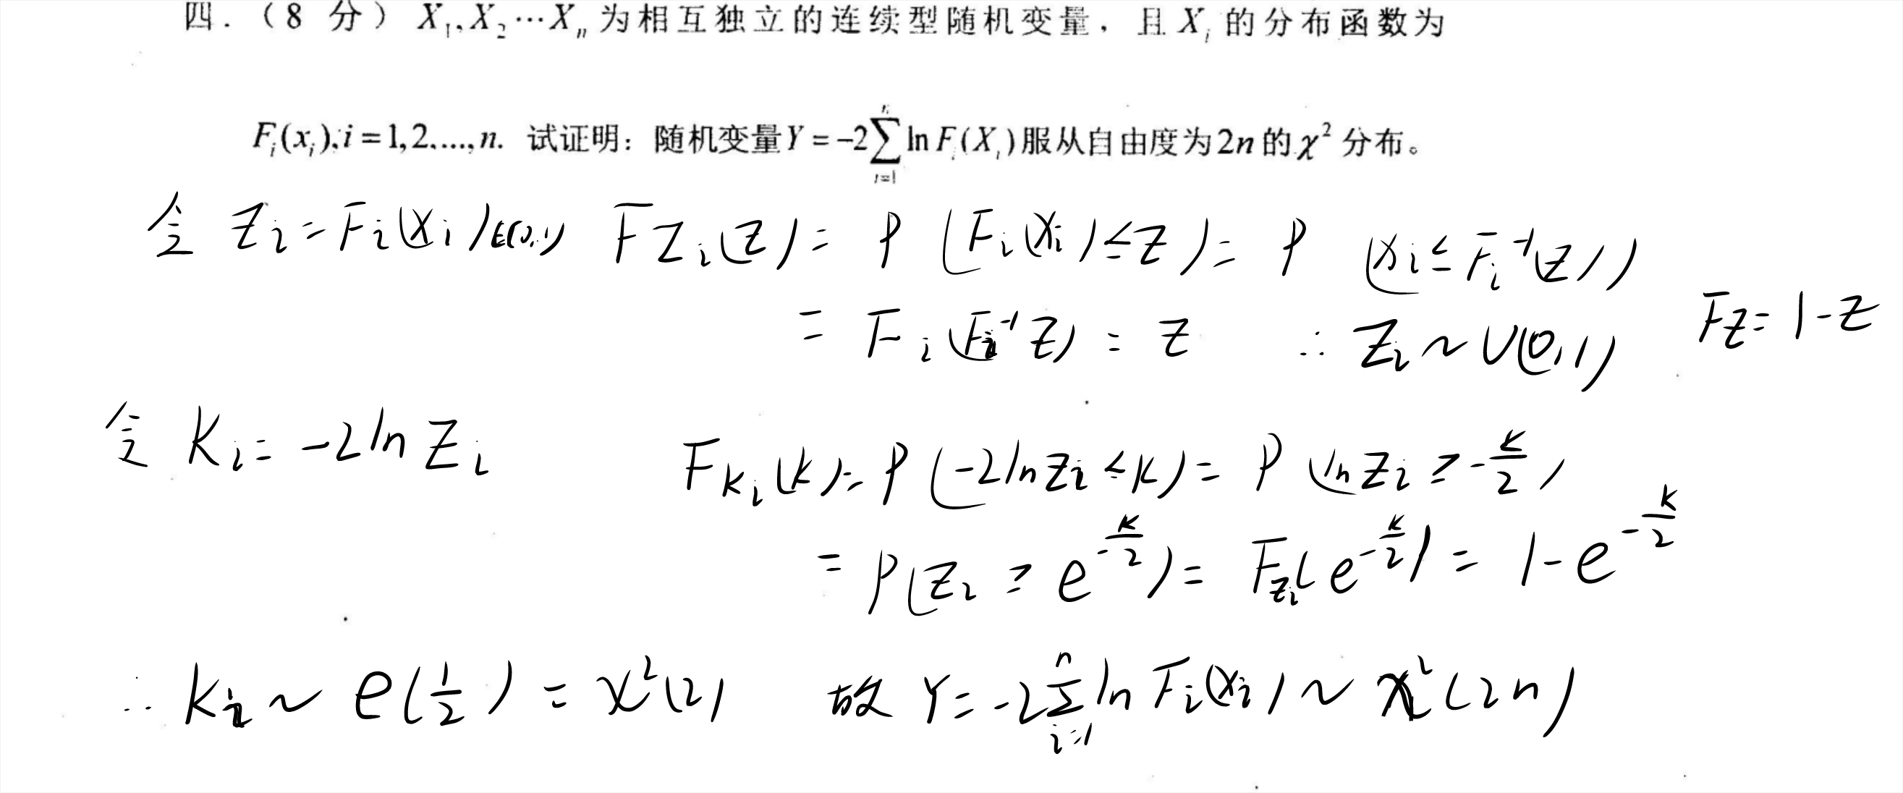 四.（8 分）X₁,X₂⋯Xₙ 为相互独立的连续型随机变量，且 Xᵢ 的分布函数为
Fᵢ(xᵢ),i=1,2,...,n. 试证明：随机变量Y=-2∑ᵢ₌₁ⁿ ln Fᵢ(Xᵢ)服从自由度为2n的χ²分布。
令 Zᵢ=Fᵢ(Xᵢ)∈(0,1) F_Zᵢ(Z)= P (Fᵢ(Xᵢ)≤Z)= P (Xᵢ≤Fᵢ⁻¹(Z))
= Fᵢ(Fᵢ⁻¹Z) = Z ∴ Zᵢ~U(0,1) F_Z=1-Z
令 Kᵢ=-2lnZᵢ F_Kᵢ(k)=P(-2lnZᵢ≤k)= P(lnZᵢ≥-k/2)
= P(Zᵢ≥e^(-k/2))= F_Zᵢ(e^(-k/2))= 1-e^(-k/2)
∴ Kᵢ~e(1/2)=χ²(2) 故 Y=-2∑ᵢ₌₁ⁿ ln Fᵢ(Xᵢ)~χ²(2n)